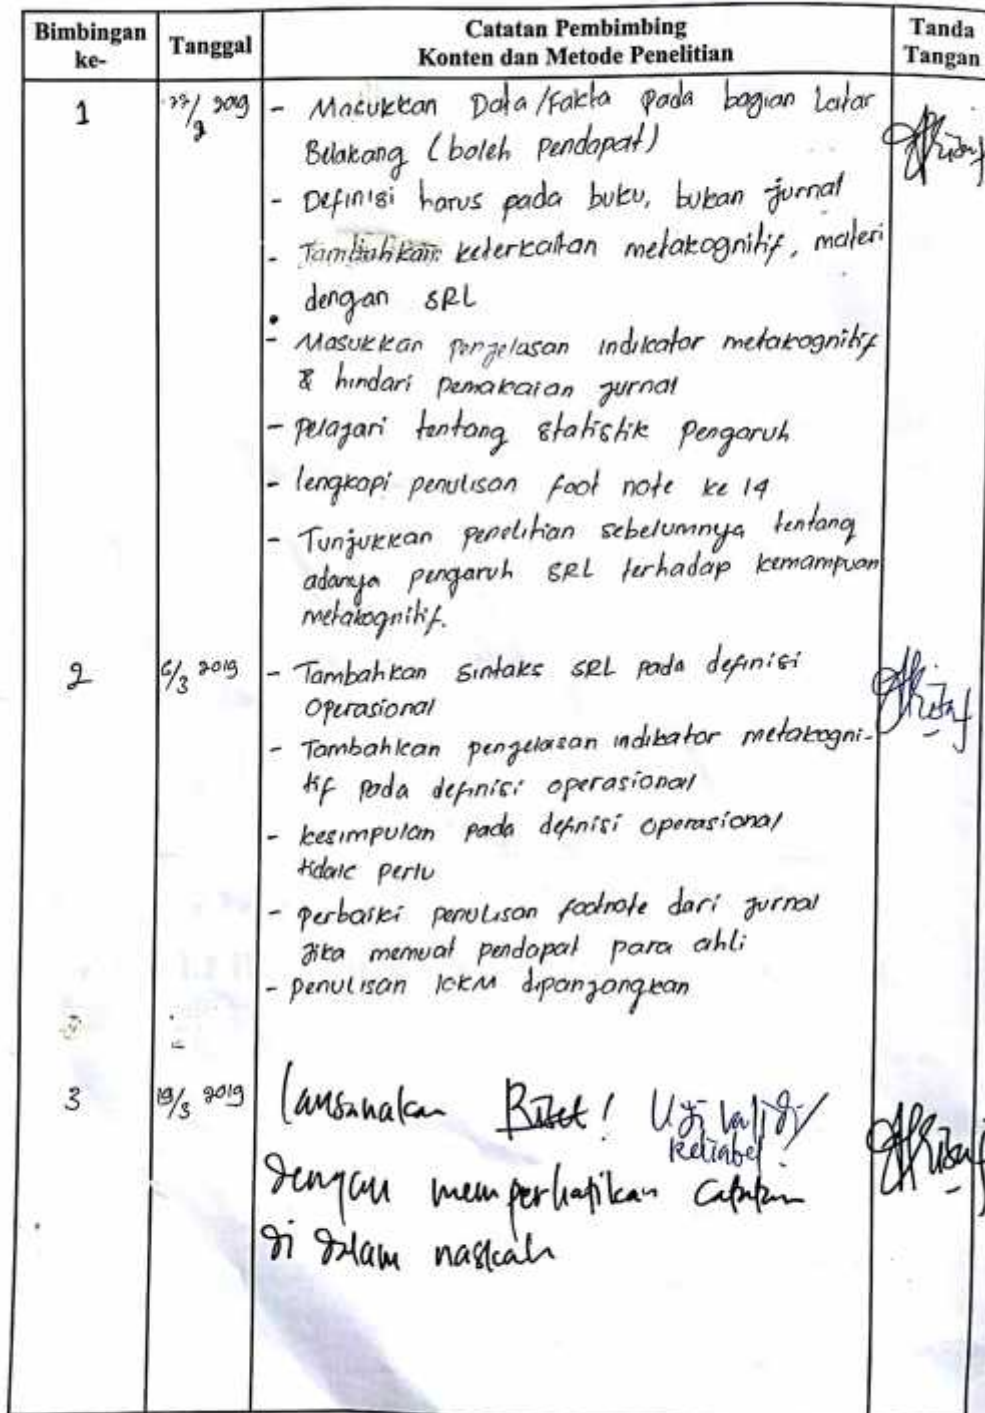 Bimbingan ke-
Tanggal
Catatan Pembimbing
Konten dan Metode Penelitian
Tanda Tangan
1
2019
- Masukkan Data/Fakta pada bagian Latar
Belakang (boleh pendapat)
- Definisi harus pada buku, bukan jurnal
- Tambahkan keterkaitan metakognitif, materi
dengan SRL
- Masukkan penjelasan indikator metakognitif
& hindari pemakaian jurnal
- pelajari tentang statistik pengaruh
- lengkapi penulisan foot note ke 14
- Tunjukkan penelitian sebelumnya tentang
adanya pengaruh SRL terhadap kemampuan
metakognitif.
2
6/3 2019
- Tambahkan sintaks SRL pada definisi
Operasional
- Tambahkan penjelasan indikator metakogni-
tif pada definisi operasional
- kesimpulan pada definisi operasional
tidak perlu
- perbaiki penulisan footnote dari jurnal
jika memuat pendapat para ahli
- penulisan KKM dipanjangkan
3
19/3 2019
Laksanakan Riset! Uji validi/
Reliabel
dengan memperhatikan catatan
di dalam naskah